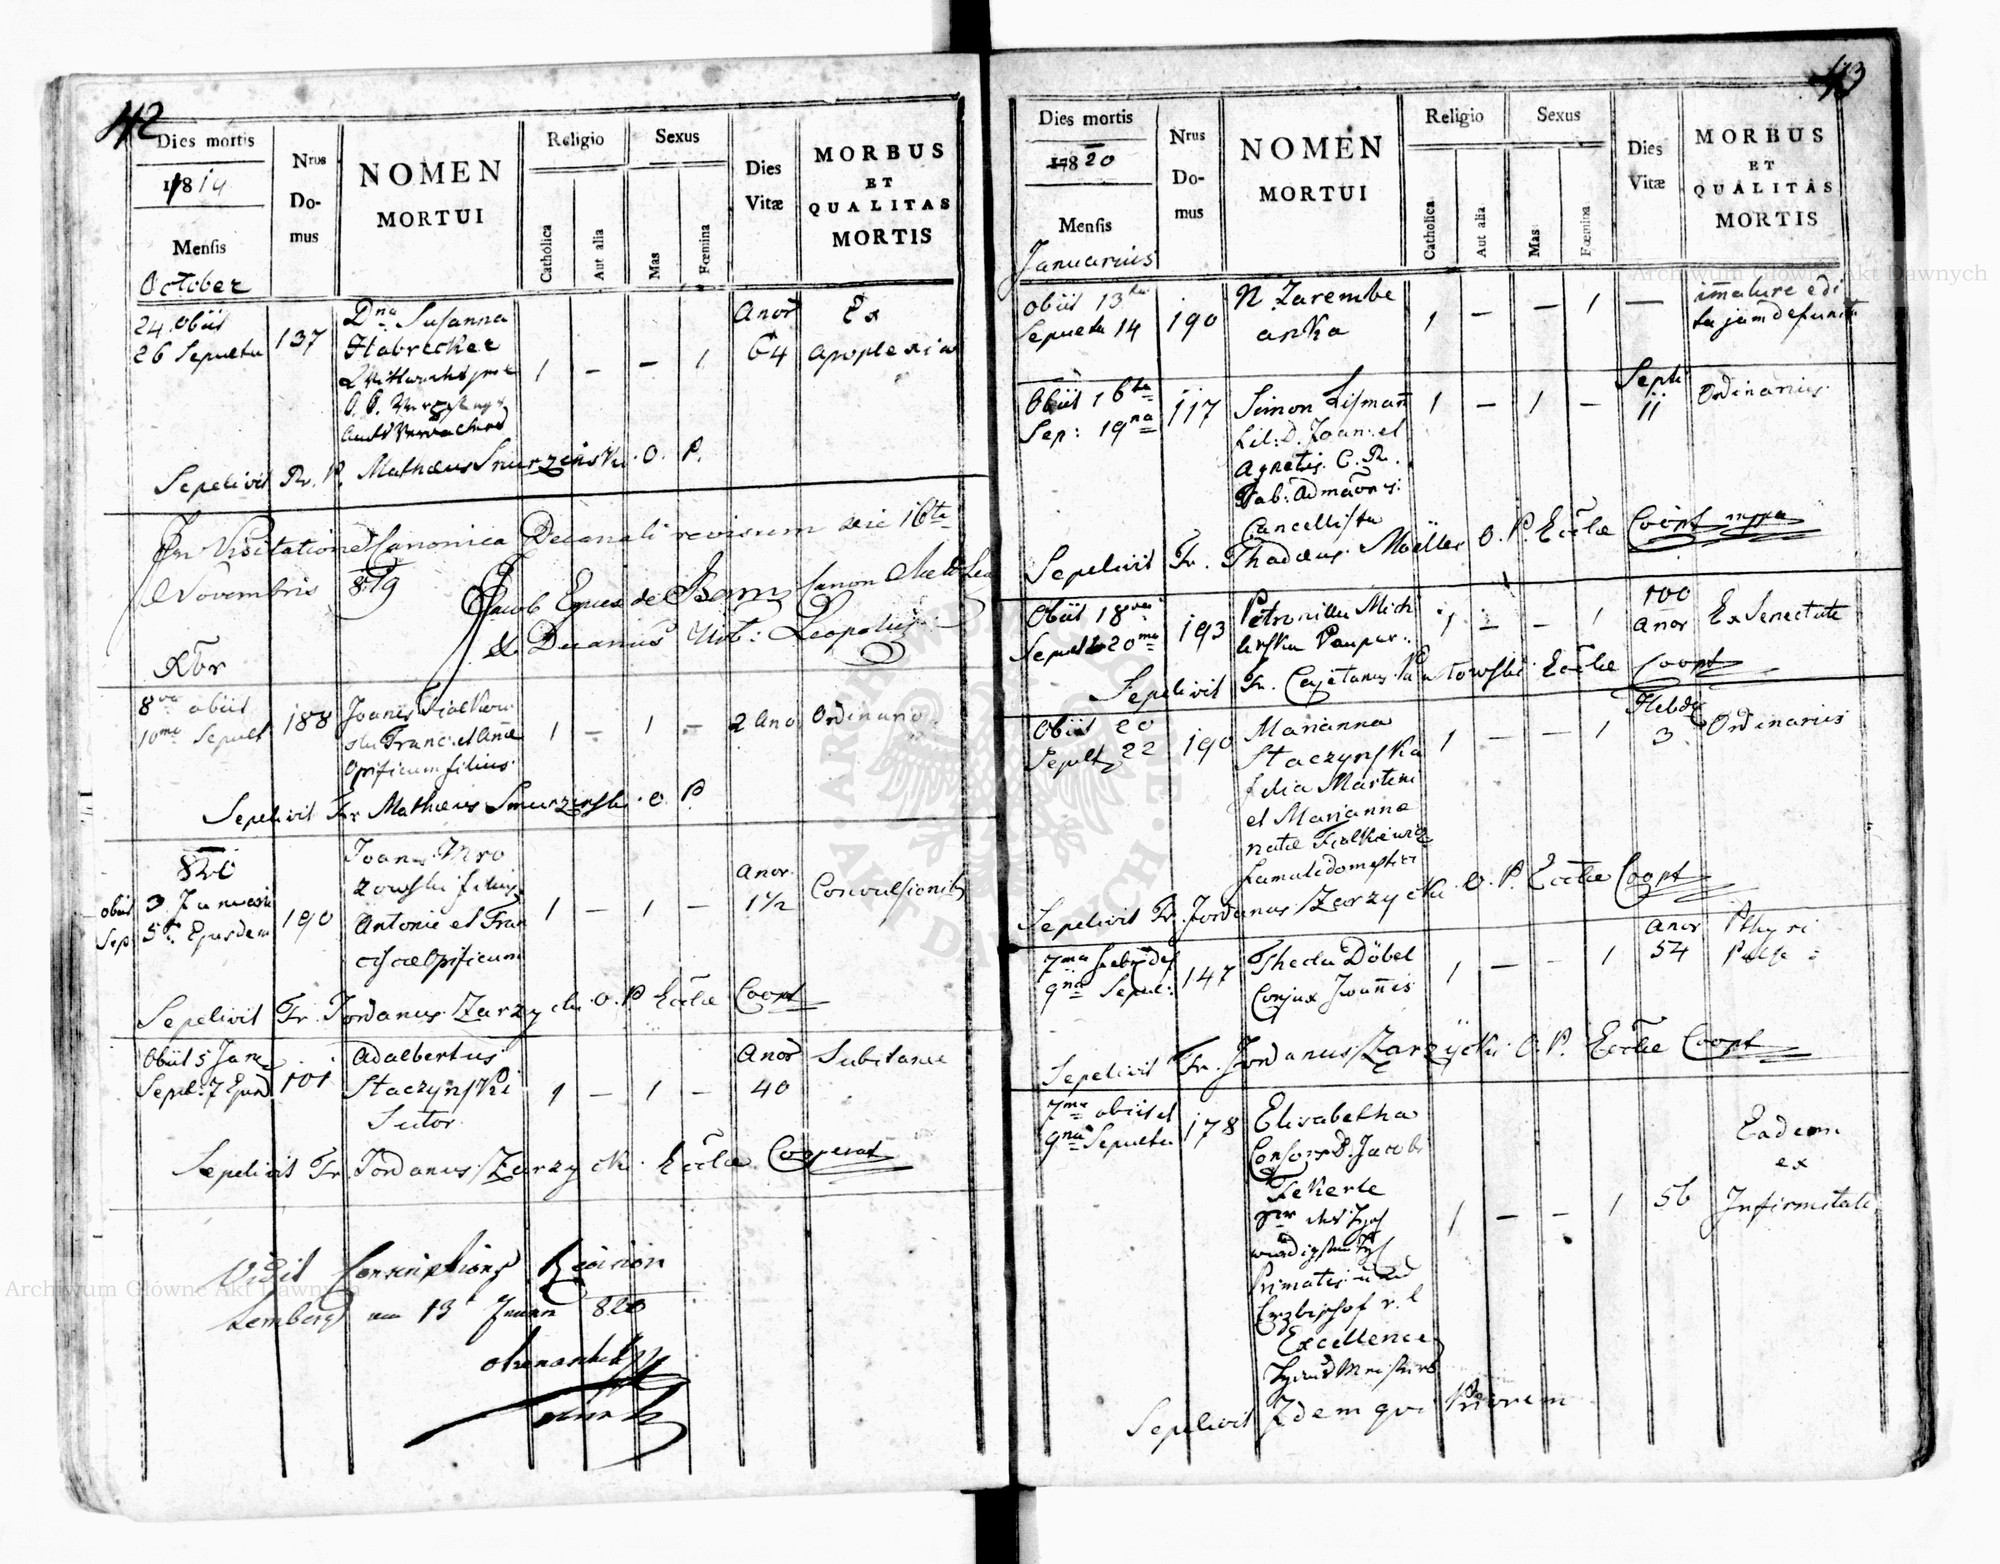 42
Dies mortis
1819
Mensis
October
Nrus
Do-
mus
NOMEN
MORTUI
Religio
Catholica
Aut alia
Sexus
Mas
Fœmina
Dies
Vitæ
MORBUS
ET
QUALITAS
MORTIS
24 Obiit
26 Sepulta
137
Dna Susanna
Habrecker
1 – – 1
Anor
64
Ex
Apoplexia
Sepelivit Fr. P. Mathæus Smurzinski O. P.
In Visitatione Canonica Decanali revisum die 16ta
Novembris 819
Jacob Eques de Bem Canon
Decanus
Xbr
8va obiit
10ma Sepult
188
Joanes Fialkow
ski Franc: et Annæ
Opificum filius
1 – 1 –
2 Ano
Ordinario
Sepelivit Fr Mathæus Smurzinski O. P.
820
obiit 3 Januarii
Sep: 5ta Ejusdem
190
Joanes Mro
zowski filius
Antonii et Fran
ciscæ Opificum
1 – 1 –
Anor
1 1/2
Convulsionib
Sepelivit Fr. Jordanus Zarzycki O. P. Eccłæ Coopt
Obiit 5 Jan
Sepul: 7 Ejusd
101
Adalbertus
Staczynski
Sutor
1 – 1 –
Anor
40
Subitanee
Sepelivit Fr. Jordanus Zarzycki Eccłæ Cooperat
Vidit Conscriptions Revision
Lemberg am 13 820
43
Dies mortis
1820
Mensis
Januarius
Nrus
Do-
mus
NOMEN
MORTUI
Religio
Catholica
Aut alia
Sexus
Mas
Fœmina
Dies
Vitæ
MORBUS
ET
QUALITAS
MORTIS
Obiit 13tia
Sepulta 14
190
N Zarembe
anka
1 – – 1 —
imature edi
ta jam defuncta
Obiit 16ta
Sep: 19na
117
Simon Lismann
fil: D. Joan: et
Agnetis C. R.
Tab: Admaonis:
Cancellista
1 – 1 –
Septi
11
Ordinarius
Sepelivit Fr. Thadæus Möller O. P. Eccłæ Coopt mppa
Obiit 18va
Sepulta 20ma
193
Petronilla Mich
linska Pauper
1 – – 1
100
Anor
Ex Senectute
Sepelivit Fr. Cajetanus Eccłæ Coopt
Obiit 20
Sepult 22
190
Marianna
Staczynska
filia Martini
et Marianna
nata Fialkiewicz
famuli domestici
1 – – 1
Hebd
3
Ordinarius
Sepelivit Fr. Jordanus Zarzycki O. P. Eccłæ Coopt
7ma
9na Sepul:
147
Thecla Döbel
Conjux Joannis
1 – – 1
Anor
54
Sepelivit Fr. Jordanus Zarzycki O. P. Eccłæ Coopt
7ma obiit et
9na Sepulta
178
Elisabetha
Consors D. Jacobi
Fekerle
Primatis und
Erzbischof v. l
Excellence
1 – – 1
56
Eadem
ex
Infirmitate
Sepelivit Idem qui Priorem
Archiwum Główne Akt Dawnych
Archiwum Główne Akt Dawnych
ARCHIWUM GŁÓWNE
AKT DAWNYCH